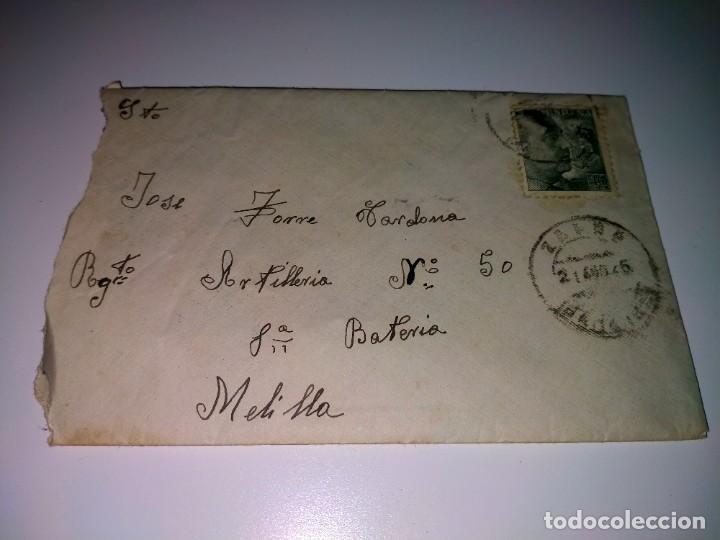 Sto
Jose Torre Cardona
Rgto Artilleria Nº 50
8ª Bateria
Melilla
ZAFRA
todocoleccion